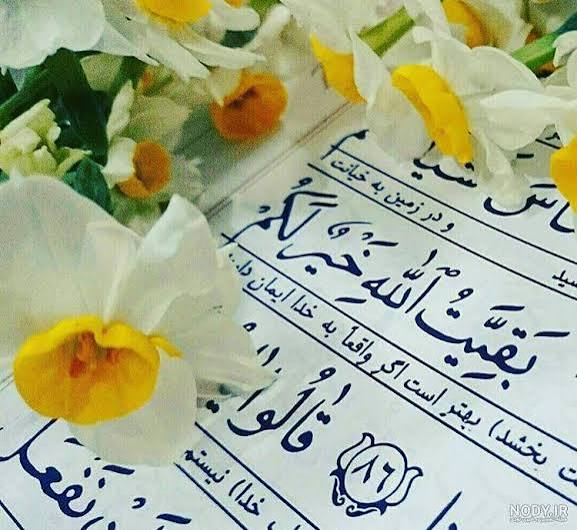 و در زمین به خیانت
بَقِيَّتُ اللّٰهِ خَيْرٌ لَكُمْ
بخشد) بهتر است اگر واقعاً به خدا ایمان
۸۶ قالُوا
خدا) نیستم
نَفْعَلَ
NODY.IR